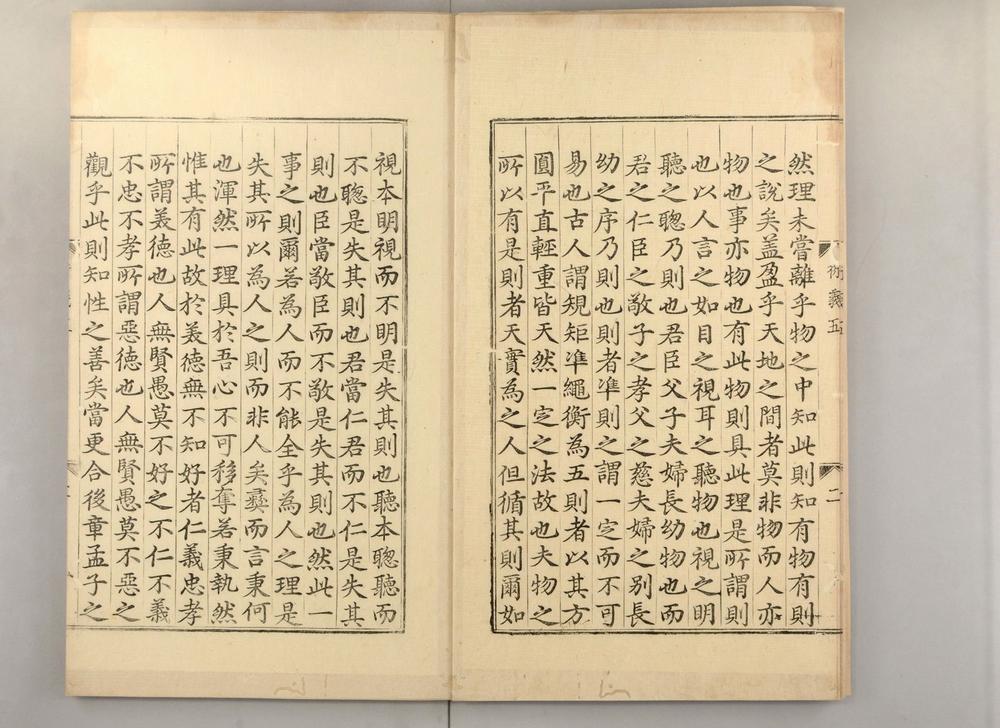 然理未嘗離乎物之中知此則知有物有則
之說矣盖盈乎天地之間者莫非物而人亦
物也事亦物也有此物則具此理是所謂則
也以人言之如目之視耳之聽物也視之明
聽之聰乃則也君臣父子夫婦長幼物也而
君之仁臣之敬子之孝父之慈夫婦之别長
幼之序乃則也則者凖則之謂一定而不可
易也古人謂規矩凖繩衡為五則者以其方
圓平直輕重皆天然一定之法故也夫物之
所以有是則者天實為之人但循其則爾如
衍義五
二
視本明視而不明是失其則也聽本聰聽而
不聰是失其則也君當仁君而不仁是失其
則也臣當敬臣而不敬是失其則也然此一
事之則爾若為人而不能全乎為人之理是
失其所以為人之則而非人矣彛而言秉何
也渾然一理具於吾心不可移奪若秉執然
惟其有此故於羙德無不知好者仁義忠孝
所謂羙德也人無賢愚莫不好之不仁不義
不忠不孝所謂惡德也人無賢愚莫不惡之
觀乎此則知性之善矣當更合後章孟子之